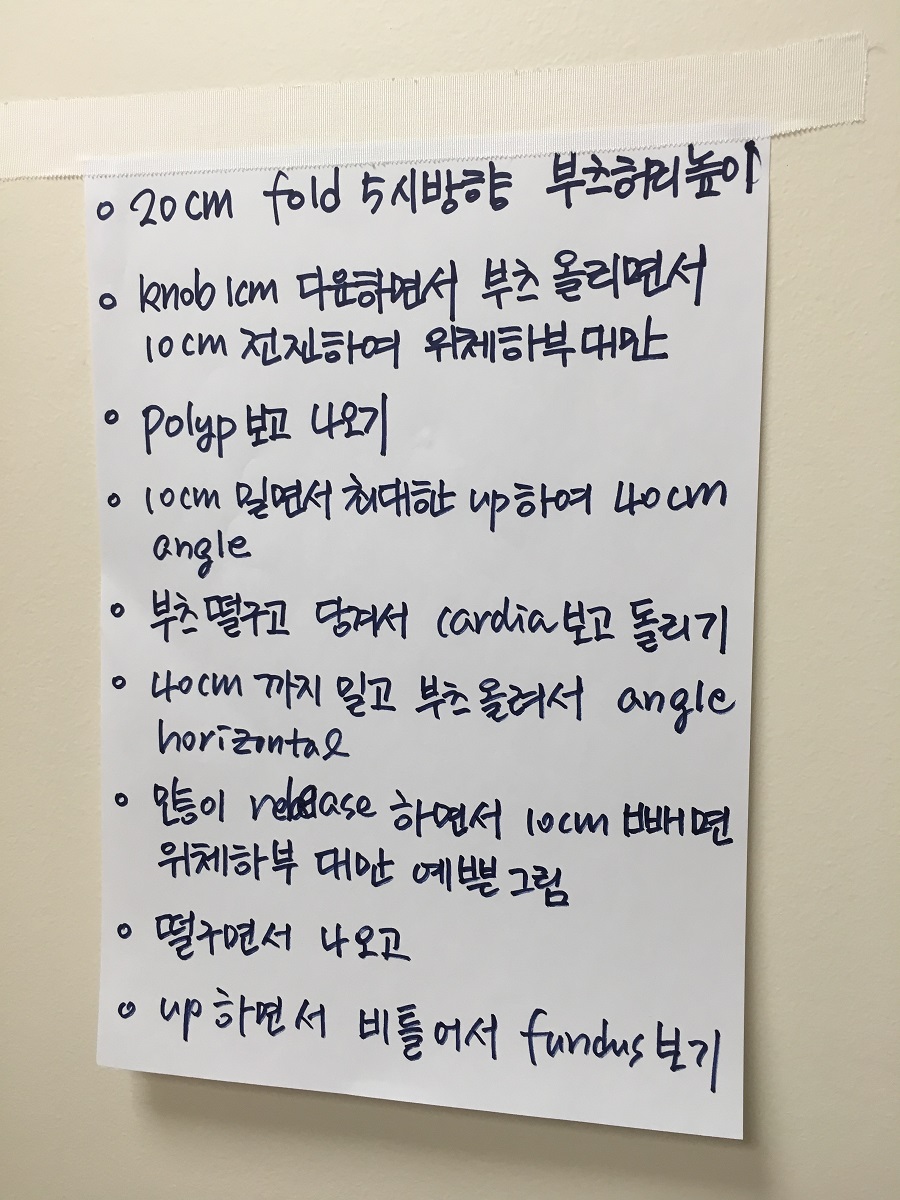 ○ 20cm fold 5시방향 부츠허리높이
○ knob 1cm 다운하면서 부츠 올리면서
10cm 전진하여 위체하부대만
○ polyp 보고 나오기
○ 10cm 밀면서 최대한 up하여 40cm
angle
○ 부츠떨구고 당겨서 cardia보고 돌리기
○ 40cm 까지 밀고 부츠올려서 angle
horizontal
○ 몬통이 release 하면서 10cm 빼면
위체하부 대만 예쁜그림
○ 떨구면서 나오고
○ up하면서 비틀어서 fundus보기